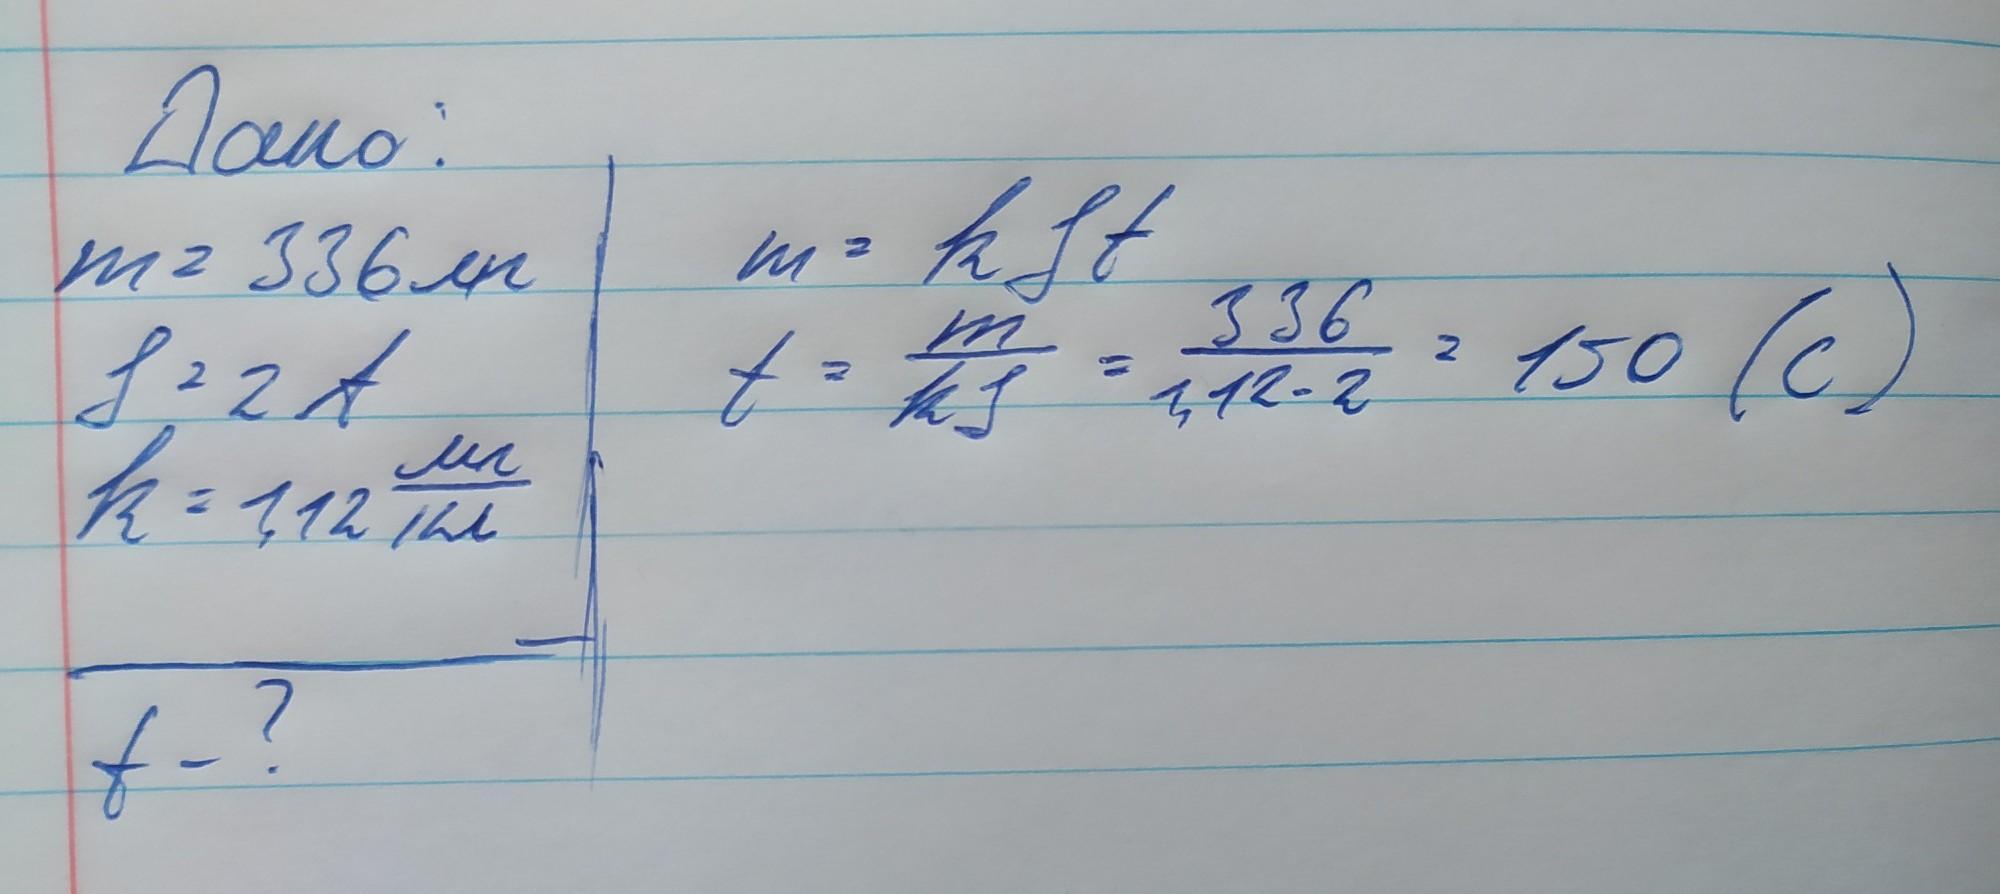 Дано:
m = 336 мг
I = 2 A
k = 1,12 мг/Кл
t - ?
m = k I t
t = m/kI = 336/1,12·2 = 150 (с)